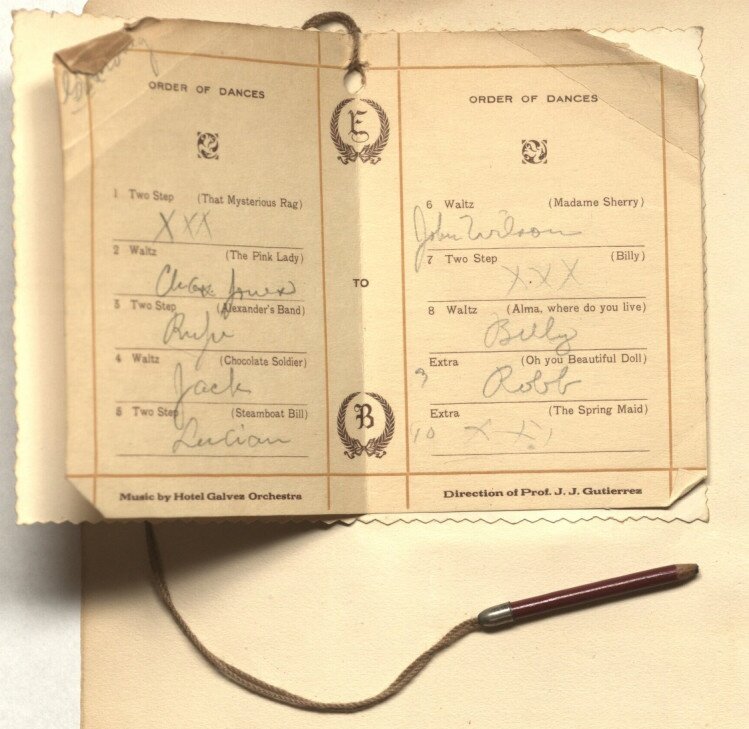 ORDER OF DANCES
1 Two Step (That Mysterious Rag)
XXX
2 Waltz (The Pink Lady)
Jones
3 Two Step (Alexander's Band)
4 Waltz (Chocolate Soldier)
Jack
5 Two Step (Steamboat Bill)
Lucian
Music by Hotel Galvez Orchestra
E
TO
B
ORDER OF DANCES
6 Waltz (Madame Sherry)
John Wilson
7 Two Step (Billy)
XXX
8 Waltz (Alma, where do you live)
Billy
9 Extra (Oh you Beautiful Doll)
Robb
Extra (The Spring Maid)
10 X X
Direction of Prof. J. J. Gutierrez